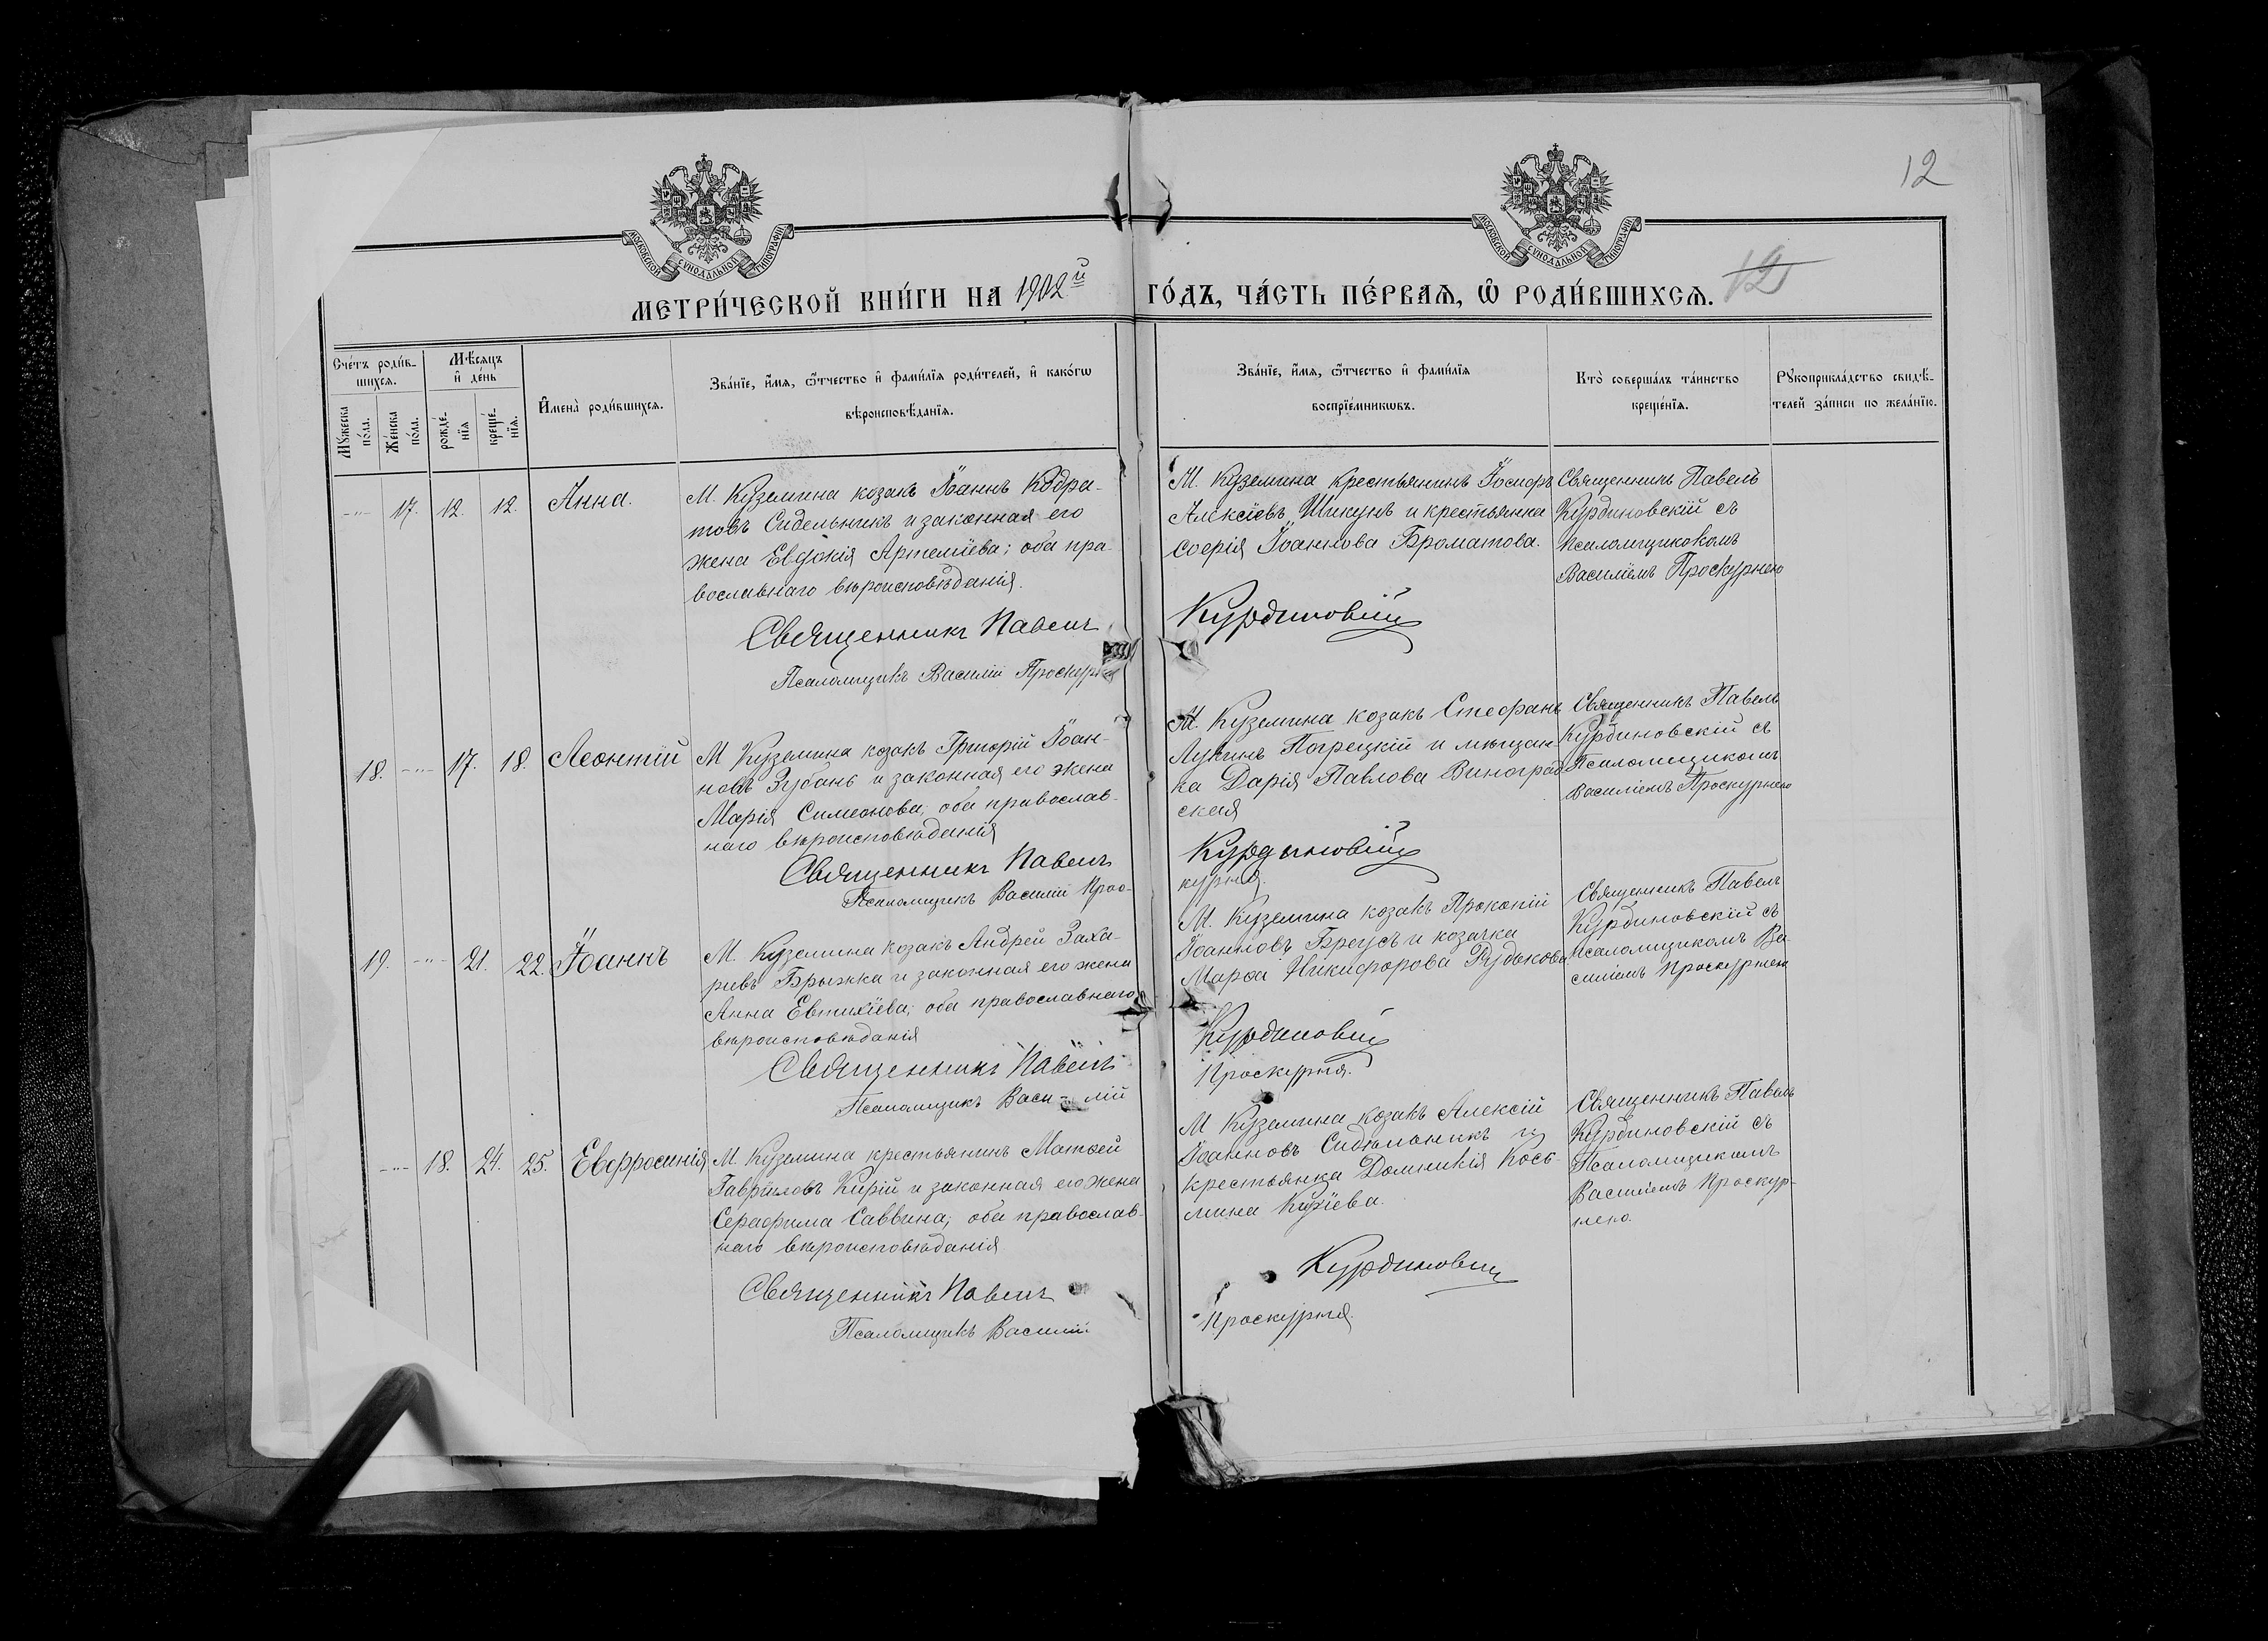 12
МОСКОВСКОЙ СѴНОДАЛЬНОЙ ТИПОГРАФІИ
МОСКОВСКОЙ СѴНОДАЛЬНОЙ ТИПОГРАФІИ
МЕТРИ́ЧЕСКОЙ КНИ́ГИ НА 1902й ГО́ДЪ, ЧА́СТЬ ПЕ́РВАѦ, Ѽ РОДИ́ВШИХСѦ. 12
Сче́тъ роди́в-
шихсѧ.
Мѣ́сѧцъ
и҆ де́нь
Мꙋ́жеска
по́ла.
Же́нска
по́ла.
рожде́-
нїѧ
креще́-
нїѧ.
И҆мена̀ роди́вшихсѧ.
Зва́нїе, и҆́мѧ, ѻ҆́тчество и҆ фами́лїѧ роди́телей, и҆ како́гѡ
вѣроисповѣ́данїѧ.
Зва́нїе, и҆́мѧ, ѻ҆́тчество и҆ фами́лїѧ
воспрїе́мникѡвъ.
Кто̀ соверша́лъ та́инство
креще́нїѧ.
Рꙋкоприкла́дство свидѣ́-
телей за́писи по жела́нїю.
-"- 17. 12. 12. Анна.
М. Куземина козакъ Іоаннъ Кодра-
товъ Сидельникъ и законная его
жена Евдокія Артеміева; оба пра-
вославнаго вѣроисповѣданія.
Священникъ Павелъ
Псаломщикъ Василій Проскурня
М. Куземина крестьянинъ Іосифъ
Алексіевъ Шикунъ и крестьянка
Софія Іоаннова Броматова.
Курдиновскій
Священникъ Павелъ
Курдиновскій съ
псаломщикомъ
Василіемъ Проскурнею
18. -"- 17. 18. Леонтій
М Куземина козакъ Григорій Іоан-
новъ Зубань и законная его жена
Марія Симеонова; оба православ-
наго вѣроисповѣданія
Священникъ Павелъ
Псаломщикъ Василій Прос-
М. Куземина козакъ Стефанъ
Лукинъ Погрецкій и мѣщан-
ка Дарія Павлова Виноград-
ская
Курдиновскій
курня.
Священникъ Павелъ
Курдиновскій съ
Псаломщикомъ
Василіемъ Проскурнею
19. -"- 21. 22. Іоаннъ
М. Куземина козакъ Андрей Заха-
ривъ Брыжка и законная его жена
Анна Евтихіева; оба православнаго
вѣроисповѣданія
Священникъ Павелъ
Псаломщикъ Васи- лій
М. Куземина козакъ Прокопій
Іоанновъ Бреусъ и козачка
Марѳа Никифорова Рудакова
Курдиновскій
Проскурня.
Священникъ Павелъ
Курдиновскій съ
псаломщикомъ Ва-
силіемъ Проскурнею
-"- 18. 24. 25. Евфросинія
М. Куземина крестьянинъ Матѳей
Гавріиловъ Кирій и законная его жена
Серафима Саввина; оба православ-
наго вѣроисповѣданія
Священникъ Павелъ
Псаломщикъ Василій
М Куземина козакъ Алексій
Іоанновъ Сидельникъ и
крестьянка Домникія Кось-
мина Киріева.
Курдиновскій
Проскурня.
Священникъ Павелъ
Курдиновскій съ
Псаломщикомъ
Василіемъ Проскур-
нею.